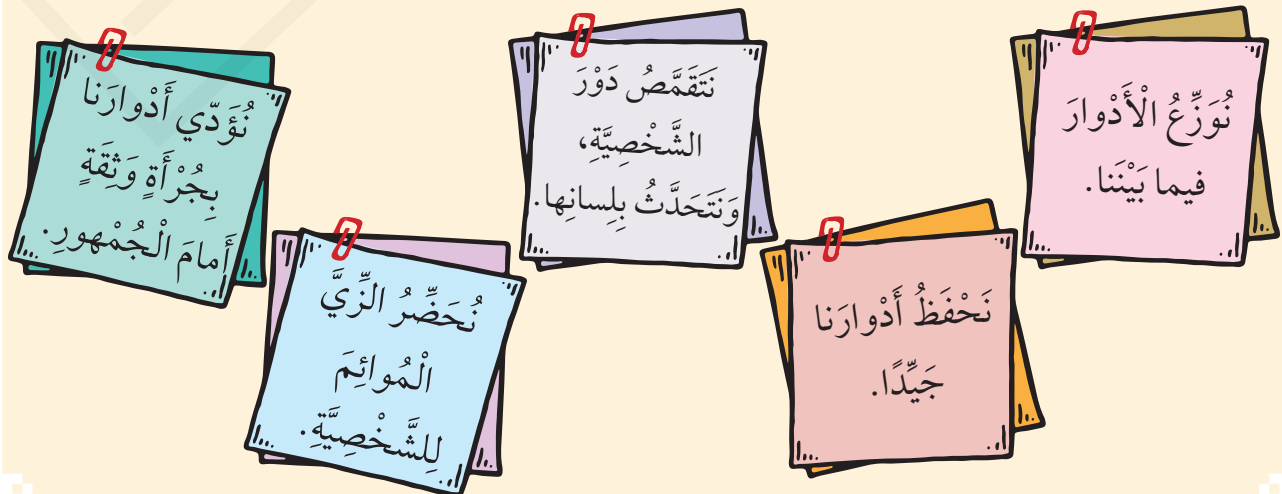 نُوَزِّعُ الْأَدْوارَ
فيما بَيْنَنا.
نَحْفَظُ أَدْوارَنا
جَيِّدًا.
نَتَقَمَّصُ دَوْرَ
الشَّخْصِيَّةِ،
وَنَتَحَدَّثُ بِلِسانِها.
نُحَضِّرُ الزِّيَّ
الْمُوائِمَ
لِلشَّخْصِيَّةِ.
نُؤَدّي أَدْوارَنا
بِجُرْأَةٍ وَثِقَةٍ
أَمامَ الْجُمْهورِ.